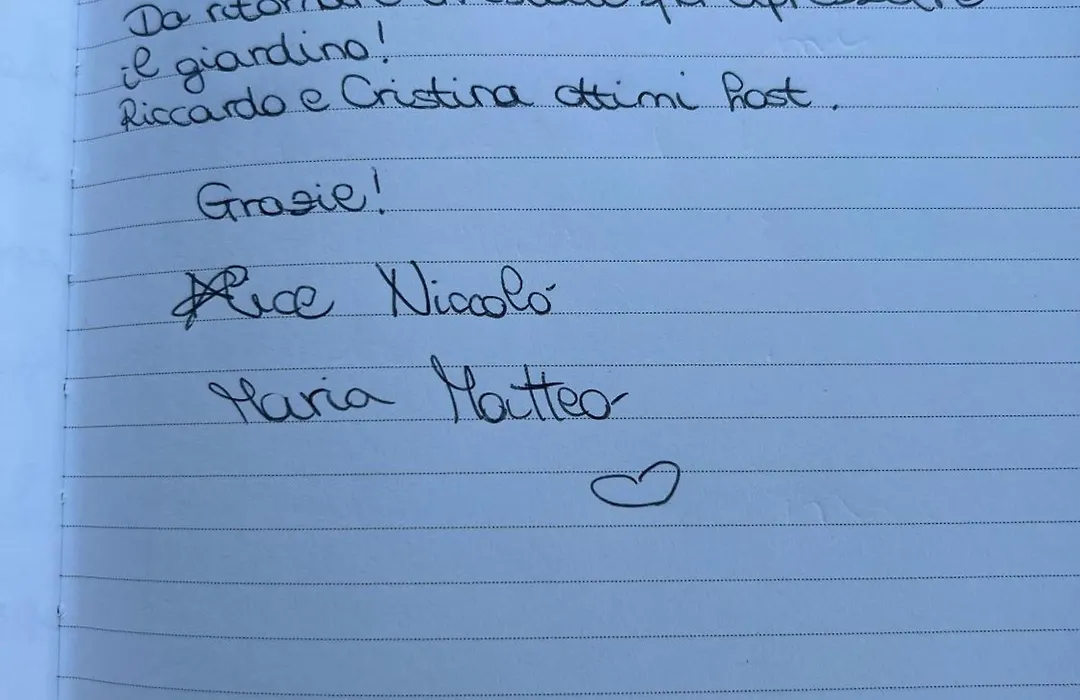 Da ritornare
il giardino!
Riccardo e Cristina ottimi host.
Grazie!
Alice Niccolò
Maria Matteo